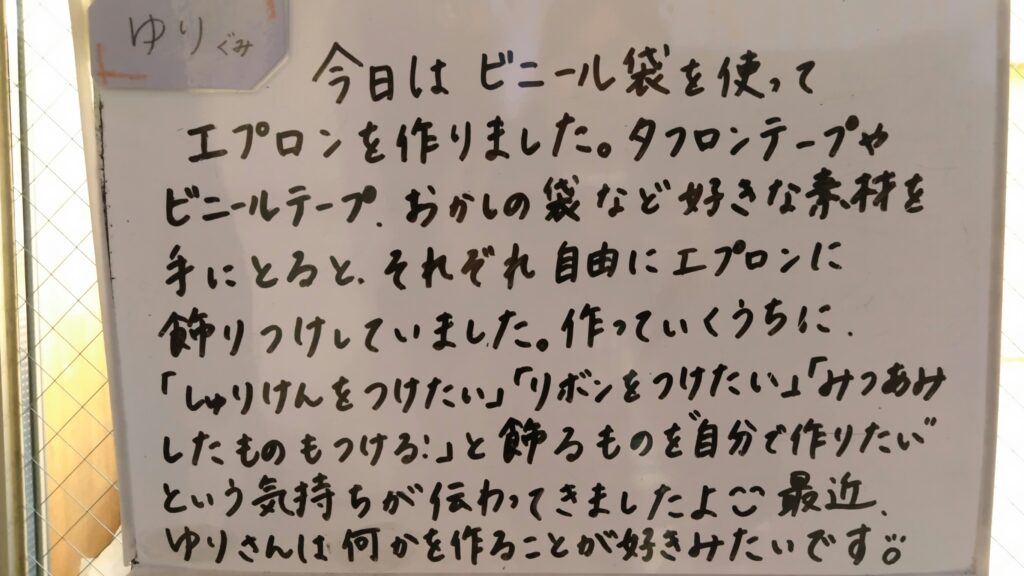 ゆりぐみ
今日は ビニール袋を使って
エプロンを作りました。タフロンテープや
ビニールテープ、おかしの袋など好きな素材を
手にとると、それぞれ自由にエプロンに
飾りつけしていました。作っていくうちに、
「しゅりけんをつけたい」「リボンをつけたい」「みつあみ
したものもつける!」と飾るものを"自分で作りたい"
という気持ちが伝わってきましたよ 最近、
ゆりさんは何かを作ることが好きみたいです。